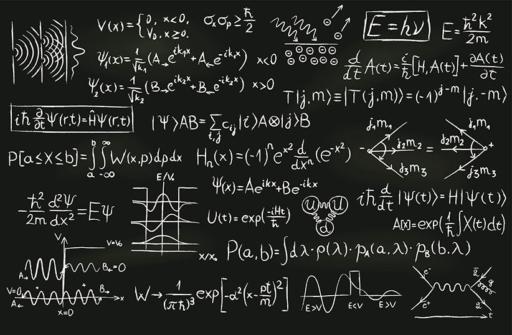 V(x)={0, x<0. V₀, x≥0.
σₓσₚ≥ħ/2
E=hν
E=ħ²k²/2m
Ψ₁(x)=1/√k₁(A→e^ik₁x+A←e^-ik₁x) x<0
d/dt A(t)=i/ħ[H,A(t)]+∂A(t)/∂t
Ψ₂(x)=1/√k₂(B→e^ik₂x+B←e^-ik₂x) x>0
T|j,m⟩≡|T(j,m)⟩=(-1)^j-m|j,-m⟩
iħ ∂/∂t Ψ(r,t)=ĤΨ(r,t)
|Ψ⟩AB=∑i,j cij|i⟩A⊗|j⟩B
j₁m₁ j₂m₂ j₃m₃ = j₁m₁ j₂m₂ j₃m₃
P[a≤X≤b]=∫a b∫-∞ ∞ W(x,p)dpdx
Hₙ(x)=(-1)ⁿe^x² dⁿ/dxⁿ(e^-x²)
E/V₀
Ψ(x)=Ae^ikx+Be^-ikx
iħ d/dt|Ψ(t)⟩=H|Ψ(t)⟩
-ħ²/2m d²Ψ/dx²=EΨ
U(t)=exp(-iHt/ħ)
U U d
A[x]=exp(1/ħ∫X(t)dt)
X/X₀
P(a,b)=∫dλ·ρ(λ)·p_A(a,λ)·p_B(b,λ)
V V=V₀
A→ B←=0
V=0 A← B→ x
x=0
W→1/(πħ)³exp[-α²(x-pt/m)²]
E>V E<V E>V
e⁻ e⁺ q q̄ g
t